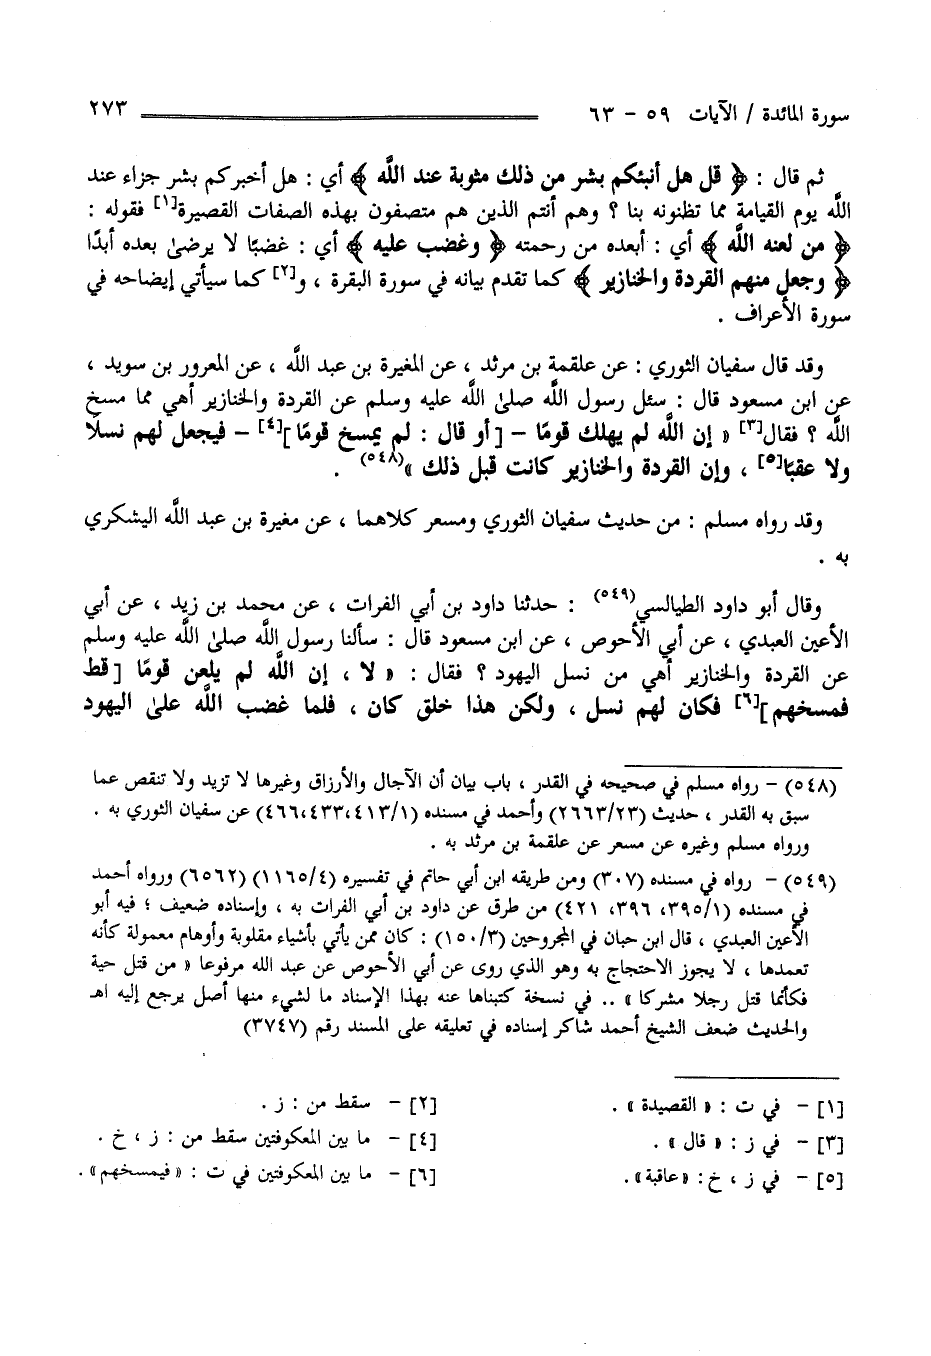 سورة المائدة / الآيات ٥٩ - ٦٣ ٢٧٣
ثم قال : ﴿ قل هل أنبئكم بشر من ذلك مثوبة عند اللَّه ﴾ أي : هل أخبركم بشر جزاء عند
اللَّه يوم القيامة مما تظنونه بنا ؟ وهم أنتم الذين هم متصفون بهذه الصفات القصيرة[١] فقوله :
﴿ من لعنه اللَّه ﴾ أي : أبعده من رحمته ﴿ وغضب عليه ﴾ أي : غضبًا لا يرضىٰ بعده أبدًا
﴿ وجعل منهم القردة والخنازير ﴾ كما تقدم بيانه في سورة البقرة ، و[٢] كما سيأتي إيضاحه في
سورة الأعراف .
وقد قال سفيان الثوري : عن علقمة بن مرثد ، عن المغيرة بن عبد اللَّه ، عن المعرور بن سويد ،
عن ابن مسعود قال : سئل رسول اللَّه صلىٰ اللَّه عليه وسلم عن القردة والخنازير أهي مما مسخ
اللَّه ؟ فقال[٣] « إن اللَّه لم يهلك قومًا – [أو قال : لم يمسخ قومًا][٤] – فيجعل لهم نسلًا
ولا عقبًا[٥] ، وإن القردة والخنازير كانت قبل ذلك »(٥٤٨) .
وقد رواه مسلم : من حديث سفيان الثوري ومسعر كلاهما ، عن مغيرة بن عبد اللَّه اليشكري
به .
وقال أبو داود الطيالسي(٥٤٩) : حدثنا داود بن أبي الفرات ، عن محمد بن زيد ، عن أبي
الأعين العبدي ، عن أبي الأحوص ، عن ابن مسعود قال : سألنا رسول اللَّه صلىٰ اللَّه عليه وسلم
عن القردة والخنازير أهي من نسل اليهود ؟ فقال : « لا ، إن اللَّه لم يلعن قومًا [قط
فمسخهم][٦] فكان لهم نسل ، ولكن هذا خلق كان ، فلما غضب اللَّه علىٰ اليهود
(٥٤٨) – رواه مسلم في صحيحه في القدر ، باب بيان أن الآجال والأرزاق وغيرها لا تزيد ولا تنقص عما
سبق به القدر ، حديث (٢٦٦٣/٢٣) وأحمد في مسنده (٤٦٦،٤٣٣،٤١٣/١) عن سفيان الثوري به .
ورواه مسلم وغيره عن مسعر عن علقمة بن مرثد به .
(٥٤٩) – رواه في مسنده (٣٠٧) ومن طريقه ابن أبي حاتم في تفسيره (١١٦٥/٤) (٦٥٦٢) ورواه أحمد
في مسنده (٣٩٥/١، ٣٩٦، ٤٢١) من طرق عن داود بن أبي الفرات به ، وإسناده ضعيف ؛ فيه أبو
الأعين العبدي ، قال ابن حبان في المجروحين (١٥٠/٣) : كان ممن يأتي بأشياء مقلوبة وأوهام معمولة كأنه
تعمدها ، لا يجوز الاحتجاج به وهو الذي روى عن أبي الأحوص عن عبد الله مرفوعا « من قتل حية
فكأنما قتل رجلا مشركا » .. في نسخة كتبناها عنه بهذا الإسناد ما لشيء منها أصل يرجع إليه اهـ
والحديث ضعف الشيخ أحمد شاكر إسناده في تعليقه على المسند رقم (٣٧٤٧)
[١] – في ت : « القصيدة » . [٢] – سقط من : ز .
[٣] – في ز : « قال » . [٤] – ما بين المعكوفتين سقط من : ز ، خ .
[٥] – في ز ، خ : «عاقبة» . [٦] – ما بين المعكوفتين في ت : « فيمسخهم» .